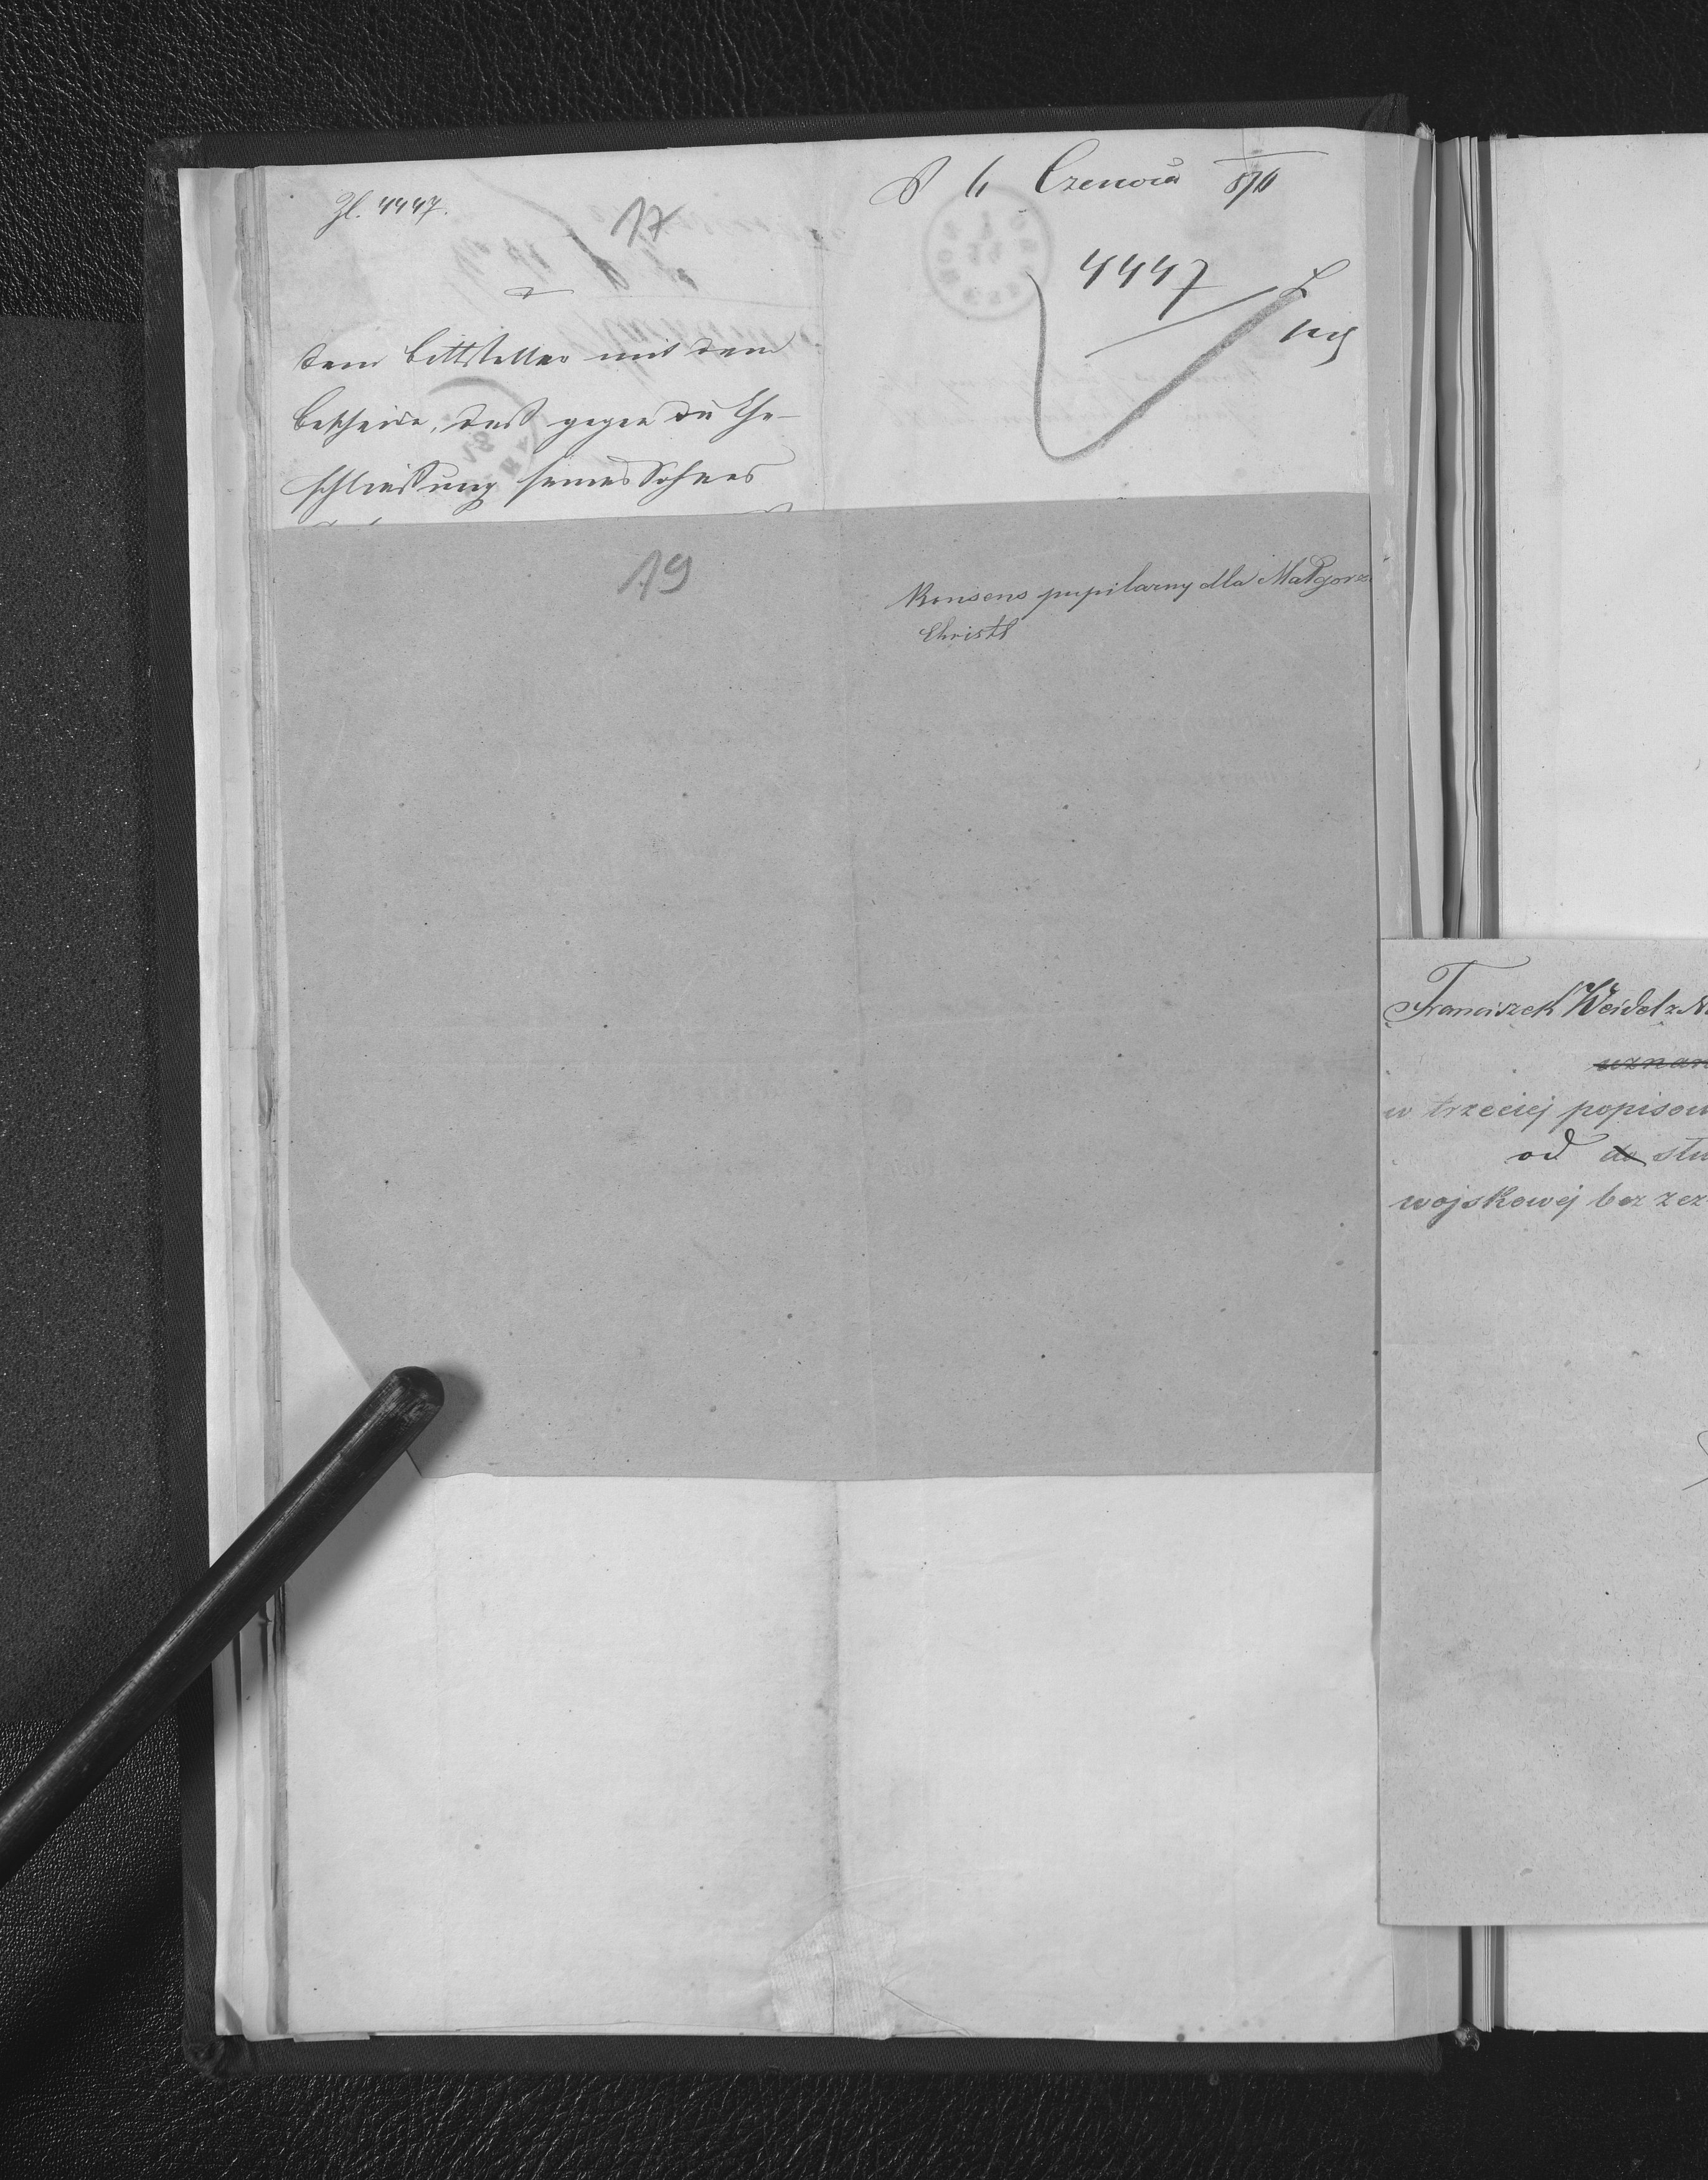 Zl. 4447.
17
Dem Bittsteller mit dem
Bescheide, daß gegen die Ehe-
schließung seines Sohnes
4 Czerwca 870
4447
19
Konsens pupilarny dla Małgorz
Christ
Franciszek Weidel z N
uznan
w trzeciej popisow
od do słu
wojskowej bez zez